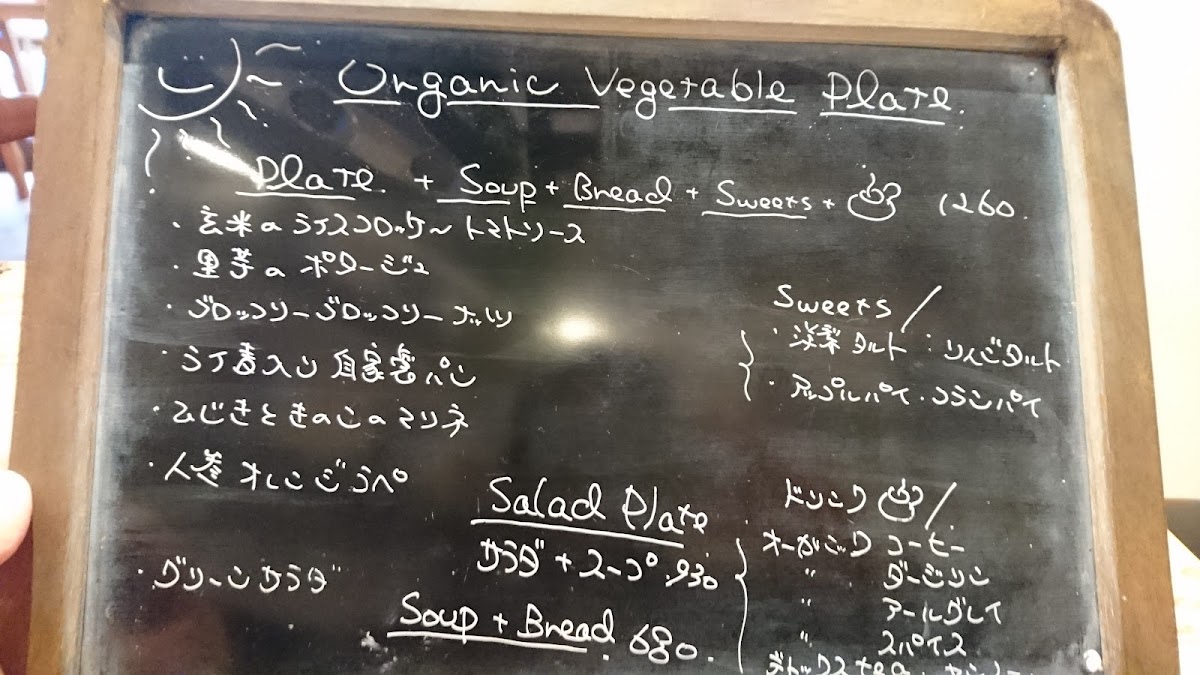 Organic Vegetable Plate.
Plate + Soup + Bread + Sweets + 1260.
・玄米のライスコロッケ〜トマトソース
・里芋のポタージュ
・ブロッコリーブロッコリーナッツ
・ライ麦入り自家製パン
・ひじきときのこのマリネ
・人参オレンジラペ
・グリーンサラダ
Sweets /
・洋梨タルト・りんごタルト
・アップルパイ・フランパイ
Salad Plate
サラダ + スープ 930
Soup + Bread 680.
ドリンク /.
オーガニックコーヒー
〃 ダージリン
〃 アールグレイ
〃 スパイス
デトックスtea